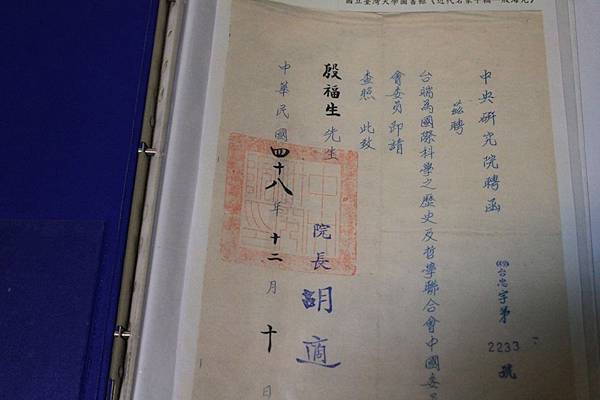 國立臺灣大學圖書館《近代名家手稿—殷海光》
中央研究院聘函
台忠字第2233號
茲聘
台端為國際科學之歷史及哲學聯合會中國委員
會委員即請
查照 此致
殷福生先生
院長 胡適
中華民國四十八年十二月十日